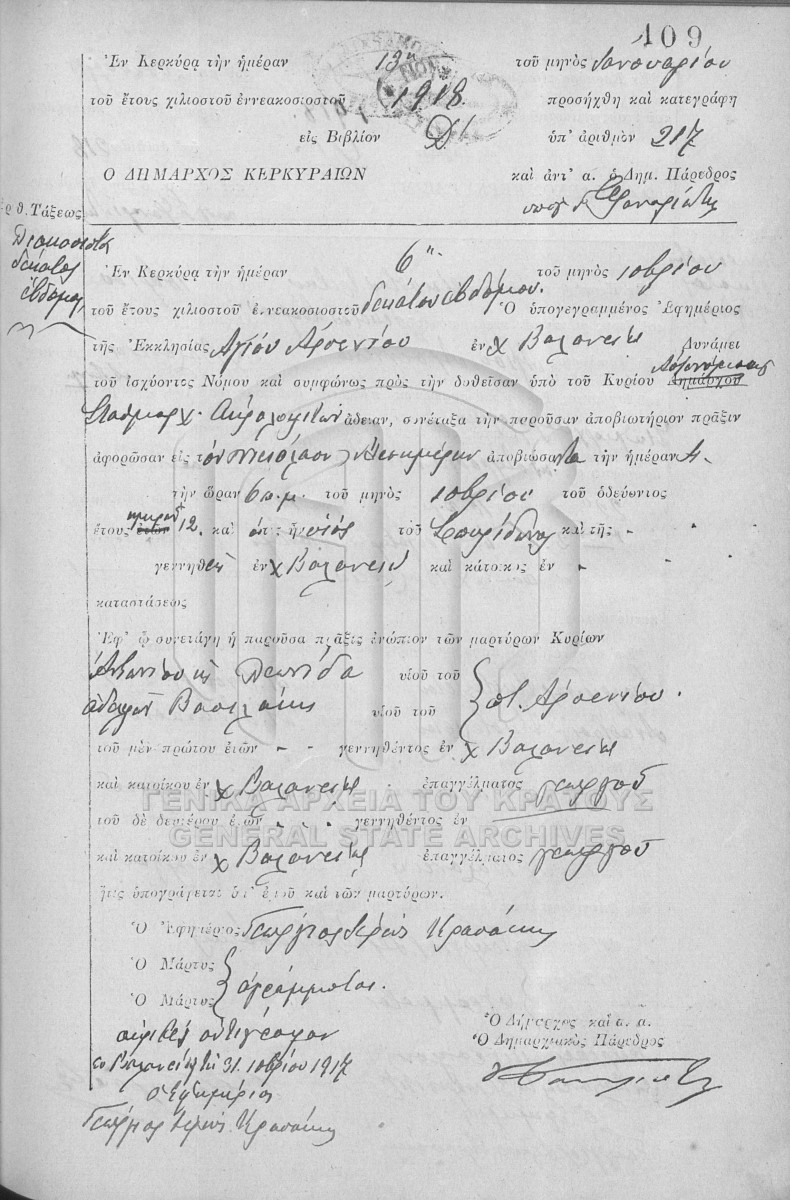 109
Ἐν Κερκύρᾳ τὴν ἡμέραν 13η τοῦ μηνὸς Ἰανουαρίου
τοῦ ἔτους χιλιοστοῦ ἐννεακοσιοστοῦ 1918. προσήχθη καὶ κατεγράφη
εἰς Βιβλίον Δ' ὑπ' ἀριθμὸν 217
Ο ΔΗΜΑΡΧΟΣ ΚΕΡΚΥΡΑΙΩΝ καὶ ἀντ' α. ὁ Δημ. Πάρεδρος
θ. Τάξεως
δέκατος
ἕβδομος
Ἐν Κερκύρᾳ τὴν ἡμέραν 6η τοῦ μηνὸς 10βρίου
τοῦ ἔτους χιλιοστοῦ ἐννεακοσιοστοῦ δεκάτου ἑβδόμου. Ὁ ὑπογεγραμμένος Ἐφημέριος
τῆς Ἐκκλησίας Ἁγίου Ἀρσενίου ἐν χ Βαλανειῷ Δυνάμει
τοῦ ἰσχύοντος Νόμου καὶ συμφώνως πρὸς τὴν δοθεῖσαν ὑπὸ τοῦ Κυρίου Δημάρχου
ἄδειαν, συνέταξα τὴν παροῦσαν ἀποβιωτήριον πρᾶξιν
ἀφορῶσαν εἰς τὸν Νικόλαον ἀποβιώσαντα τὴν ἡμέραν 4
τὴν ὥραν 6 π.μ. τοῦ μηνὸς 10βρίου τοῦ ὁδεύοντος
ἔτους ἡμερῶν ἐτῶν 12. καὶ ὅστις ἦν υἱὸς τοῦ Σπυρίδωνος καὶ τῆς
γεννηθεὶς ἐν χ Βαλανειῷ καὶ κάτοικος ἐν
καταστάσεως
Ἐφ' ᾧ συνετάγη ἡ παροῦσα πρᾶξις ἐνώπιον τῶν μαρτύρων Κυρίων
Ἀντωνίου υἱοῦ τοῦ
Βασιλάκη υἱοῦ τοῦ Ἀρσενίου.
τοῦ μὲν πρώτου ἐτῶν γεννηθέντος ἐν χ Βαλανειῷ
καὶ κατοίκου ἐν χ Βαλανειῷ ἐπαγγέλματος γεωργοῦ
ΓΕΝΙΚΑ ΑΡΧΕΙΑ ΤΟΥ ΚΡΑΤΟΥΣ
τοῦ δὲ δευτέρου ἐτῶν γεννηθέντος ἐν
GENERAL STATE ARCHIVES
καὶ κατοίκου ἐν χ Βαλανειῷ ἐπαγγέλματος γεωργοῦ
ἥτις ὑπογράφεται ὑπ' ἐμοῦ καὶ τῶν μαρτύρων.
Ὁ Ἐφημέριος Γεώργιος Ἱερεὺς Κρασάκης
Ὁ Μάρτυς
Ὁ Μάρτυς ἀγράμματοι.
Ὁ Δήμαρχος καὶ α. α.
Ὁ Δημαρχιακὸς Πάρεδρος
ἀκριβὲς ἀντίγραφον
ἐν Βαλανειῷ τῇ 31. 10βρίου 1917
ὁ Ἐφημέριος
Γεώργιος Ἱερεὺς Κρασάκης